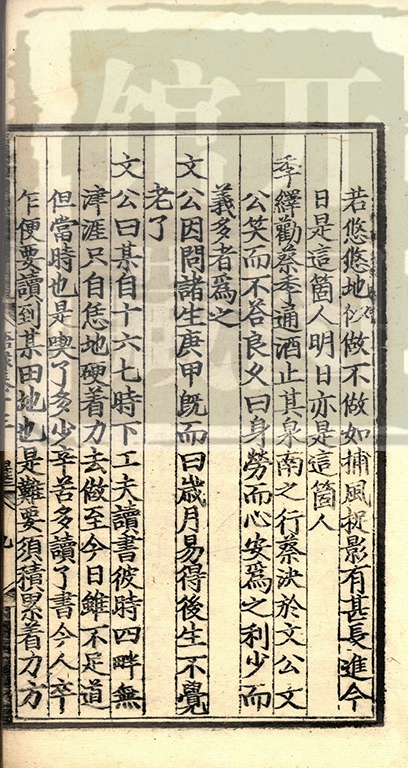 若悠悠地似做不做如捕風捉影有甚長進今
日是這箇人明日亦是這箇人
季繹勸蔡季通酒止其泉南之行蔡決於文公文
公笑而不荅良久曰身勞而心安爲之利少而
義多者爲之
文公因問諸生庚甲既而曰歲月易得後生不覺
老了
文公曰某自十六七時下工夫讀書彼時四畔無
津涯只自恁地硬着力去做至今日雖不足道
但當時也是喫了多少辛苦多讀了書今人卒
乍便要讀到某田地也是難要須積累着力方